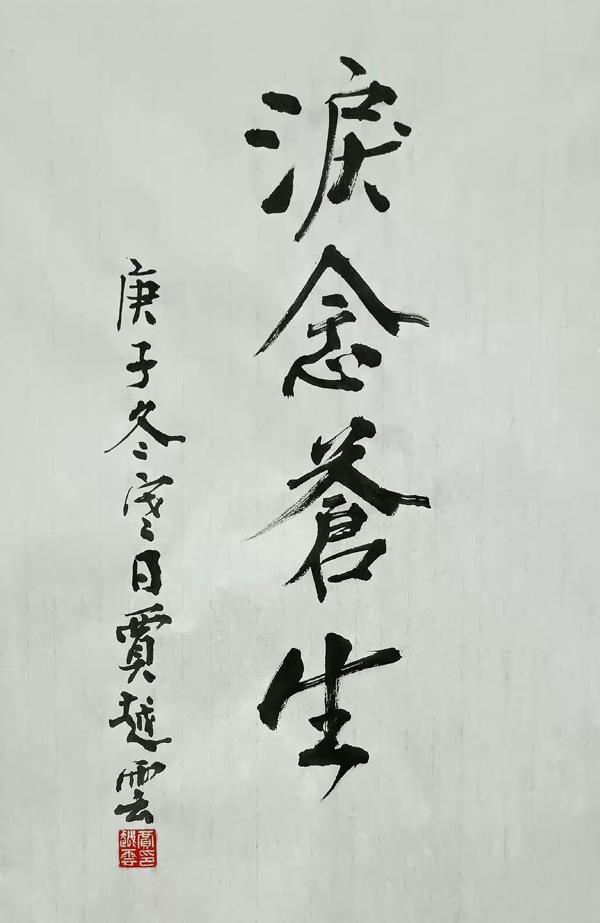 淚念蒼生
庚子冬寒日賈越雲
賈越雲印